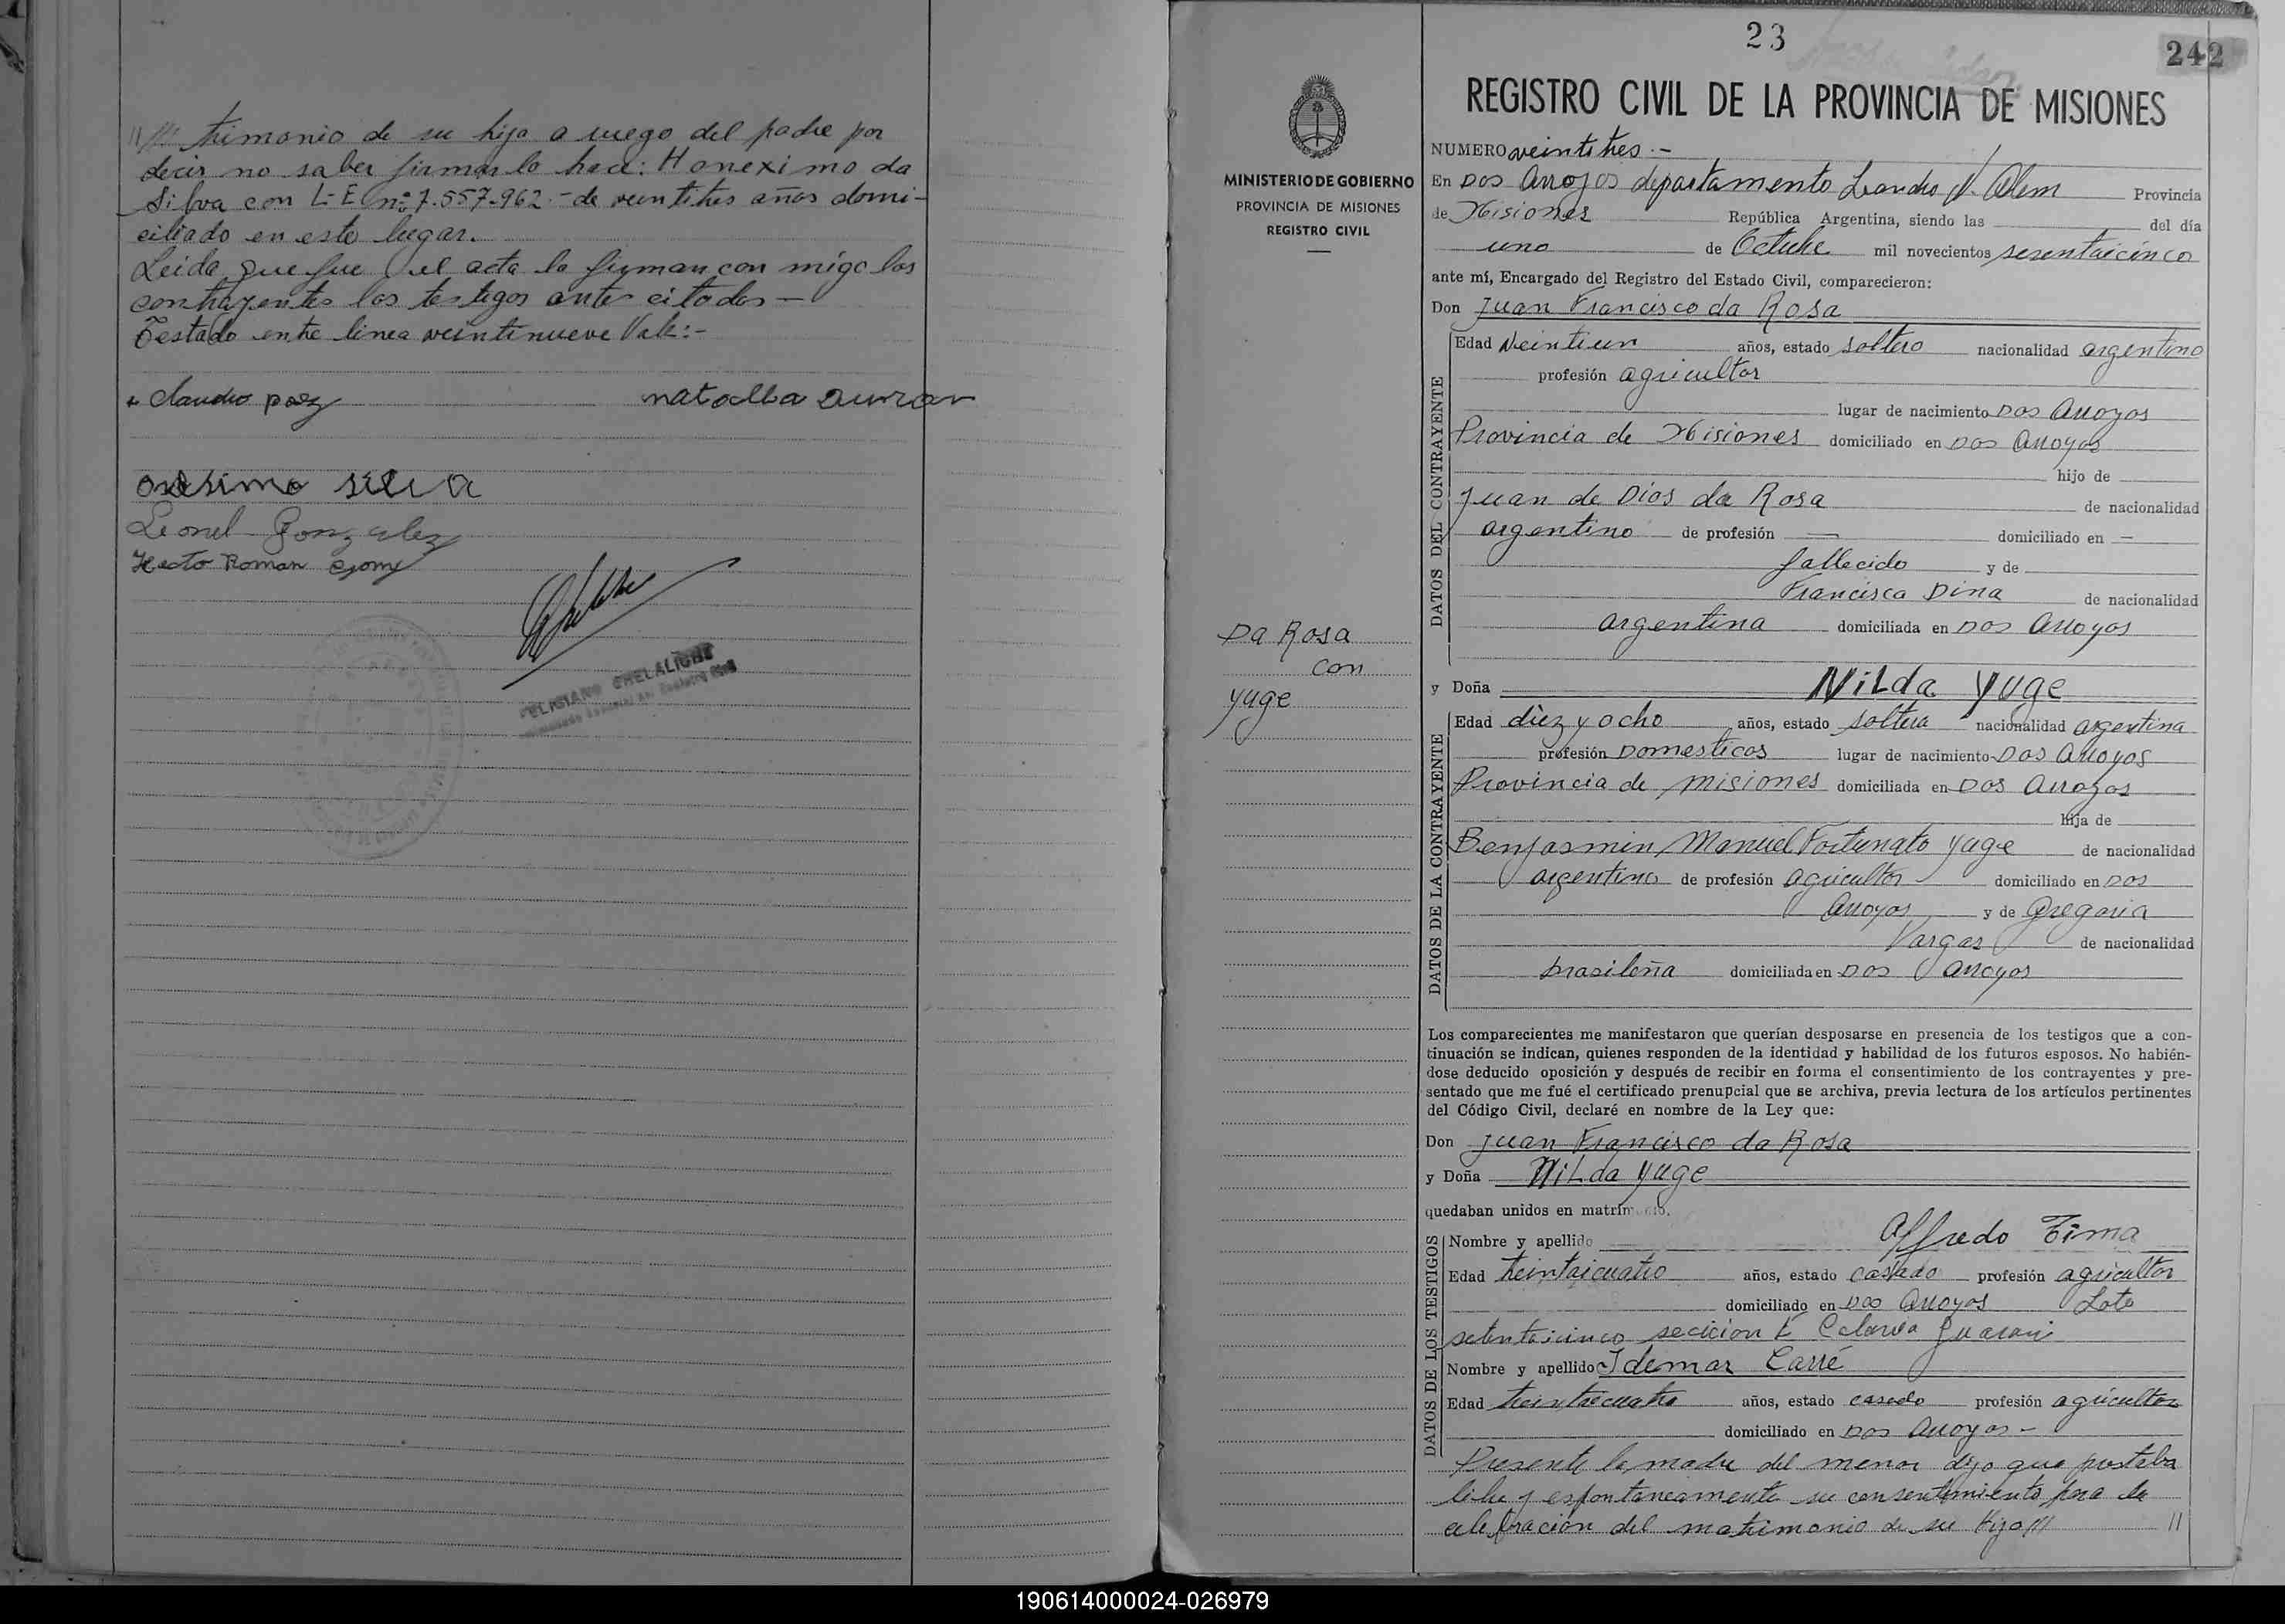 trimonio de su hija a ruego del padre por
decir no saber firmar lo hace: Honeximo da
Silva con L-E nº 7.557-962.- de veintitres años domi-
ciliado en este lugar.
Leida que fue el acta la firman con migo los
contrayentes los testigos antes citados —
Testado entre linea veintinueve Vale:-
Claudio paez
natalia Duran
onesimo silva
Leonel Gonzalez
Hecto Roman Gomez
23
242
REGISTRO CIVIL DE LA PROVINCIA DE MISIONES
MINISTERIO DE GOBIERNO
PROVINCIA DE MISIONES
REGISTRO CIVIL
Da Rosa
con
yuge
NUMERO veintitres.-
En Dos Arroyos departamento Leandro N. Alem Provincia
de Misiones República Argentina, siendo las del día
uno de Octubre mil novecientos sesentaicinco
ante mí, Encargado del Registro del Estado Civil, comparecieron:
Don Juan Francisco da Rosa
DATOS DEL CONTRAYENTE
Edad Veintiun años, estado soltero nacionalidad argentino
profesión agricultor
lugar de nacimiento Dos Arroyos
Provincia de Misiones domiciliado en Dos Arroyos
hijo de
Juan de Dios da Rosa de nacionalidad
argentino de profesión — domiciliado en —
fallecido y de
Francisca Dina de nacionalidad
argentina domiciliada en Dos Arroyos
y Doña Nilda Yuge
DATOS DE LA CONTRAYENTE
Edad diez y ocho años, estado soltera nacionalidad argentina
profesión Domesticos lugar de nacimiento Dos Arroyos
Provincia de Misiones domiciliada en Dos Arroyos
hija de
Benjasmin Manuel Fortunato yuge de nacionalidad
argentino de profesión agricultor domiciliado en Dos
Arroyos y de Gregoria
Vargas de nacionalidad
brasileña domiciliada en Dos Arroyos
Los comparecientes me manifestaron que querían desposarse en presencia de los testigos que a con-
tinuación se indican, quienes responden de la identidad y habilidad de los futuros esposos. No habién-
dose deducido oposición y después de recibir en forma el consentimiento de los contrayentes y pre-
sentado que me fué el certificado prenupcial que se archiva, previa lectura de los artículos pertinentes
del Código Civil, declaré en nombre de la Ley que:
Don Juan Francisco da Rosa
y Doña Nilda Yuge
quedaban unidos en matrimonio.
DATOS DE LOS TESTIGOS
Nombre y apellido Alfredo Tima
Edad treintaicuatro años, estado casado profesión agricultor
domiciliado en Dos Arroyos Lote
setentaicinco seccion E Colonia Guarani
Nombre y apellido Idemar Carré
Edad treintaicuatro años, estado casado profesión agricultor
domiciliado en Dos Arroyos -
Presente la madre del menor dijo que prestaba
libre y espontaneamente su consentimiento para la
celebración del matrimonio de su hijo///
190614000024-026979